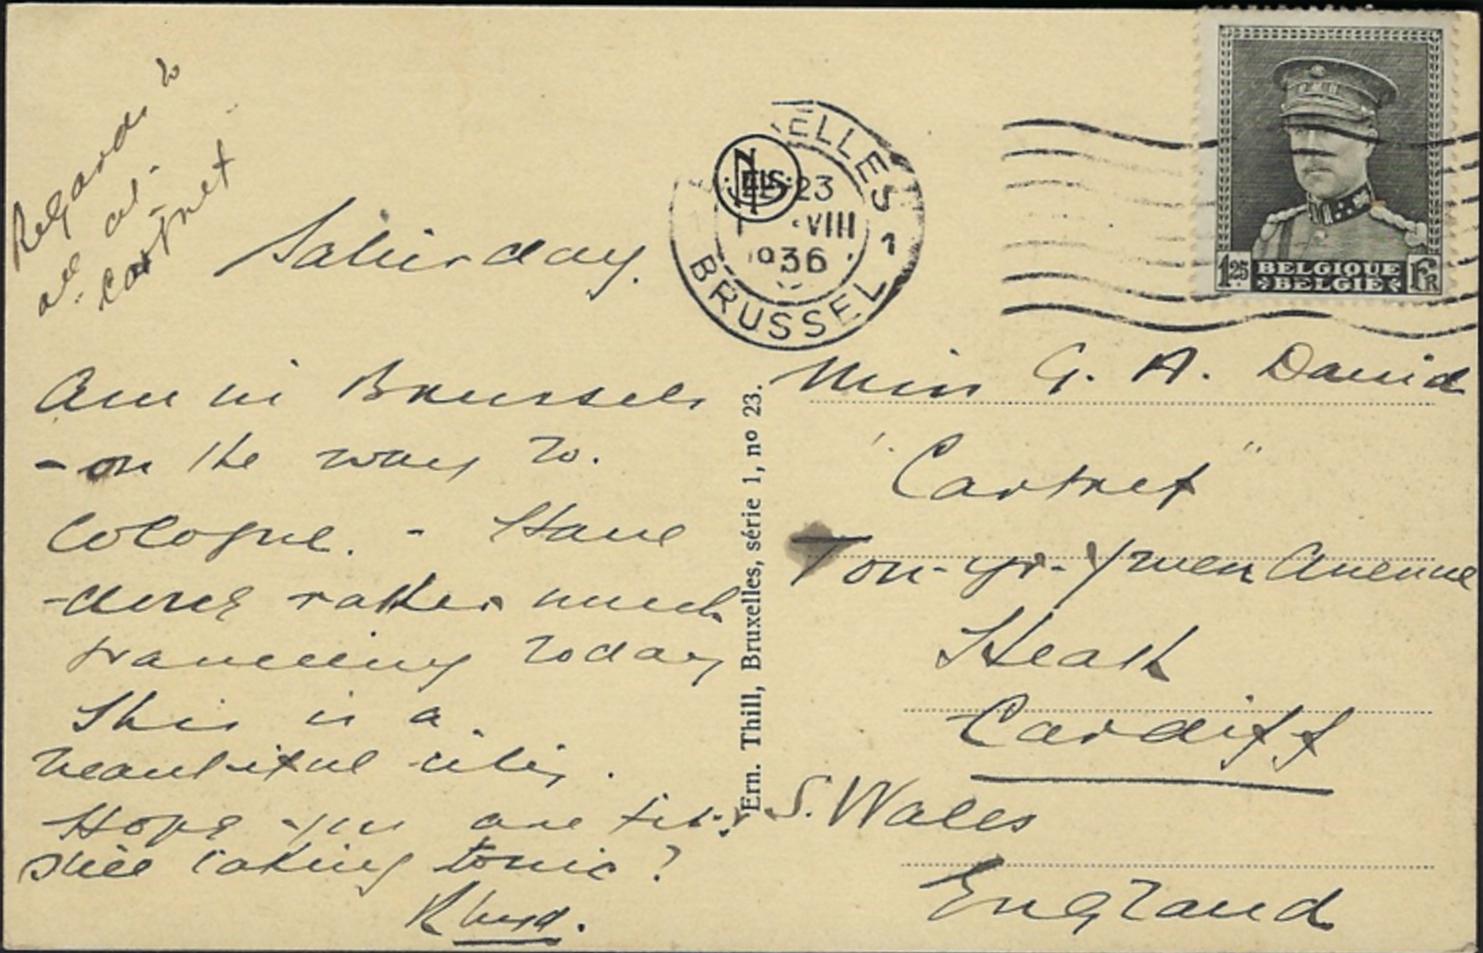 Regards to
all at
Cartref
Saturday.
Am in Brussels
- on the way to
Cologne. - Have
done rather much
travelling today
This is a
beautiful city.
Hope you are fit,
still taking tonic?
Rhyd.
Ern. Thill, Bruxelles, série 1, nº 23.
NELS
ELLES 1
23
VIII
1936
BRUSSEL
1.25 BELGIQUE FR
BELGIË
Miss G. A. David
"Cartref"
Ton-yr-Ywen Avenue
Heath
Cardiff
S. Wales
England